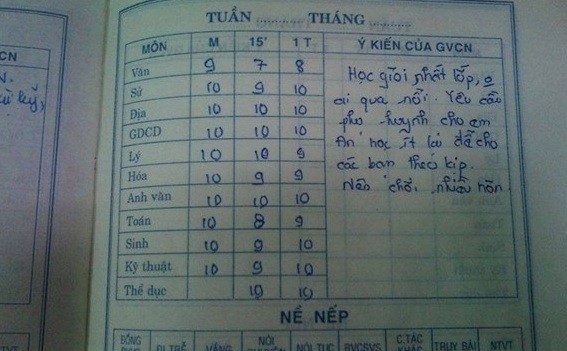 TUẦN THÁNG
CN
MÔN M 15' 1 T Ý KIẾN CỦA GVCN
Văn 9 7 8
Sử 10 9 10
Địa 10 10 10
GDCD 10 10 10
Lý 10 10 9
Hóa 10 9 9
Anh văn 10 10 10
Toán 10 8 9
Sinh 10 9 10
Kỹ thuật 10 9 10
Thể dục 10 10
Học giỏi nhất lớp, o
ai qua nổi. Yêu cầu
phụ huynh cho em
Ân học ít lại để cho
các bạn theo kịp.
Nên chơi nhiều hơn
NỀ NẾP
ĐỒNG ĐI TRỄ VẮNG NÓI NÓI TỤC C.TÁC TRUY BÀI NTVT
NTVT